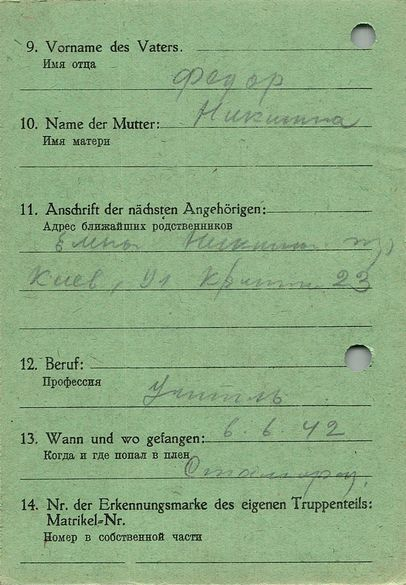 9. Vorname des Vaters.
Имя отца
Федор
10. Name der Mutter:
Никитина
Имя матери
11. Anschrift der nächsten Angehörigen:
Адрес ближайших родственников
Киев, Ул 23
12. Beruf:
Профессия
Учитель
13. Wann und wo gefangen: 6. 6. 42
Когда и где попал в плен
14. Nr. der Erkennungsmarke des eigenen Truppenteils:
Matrikel-Nr.
Номер в собственной части